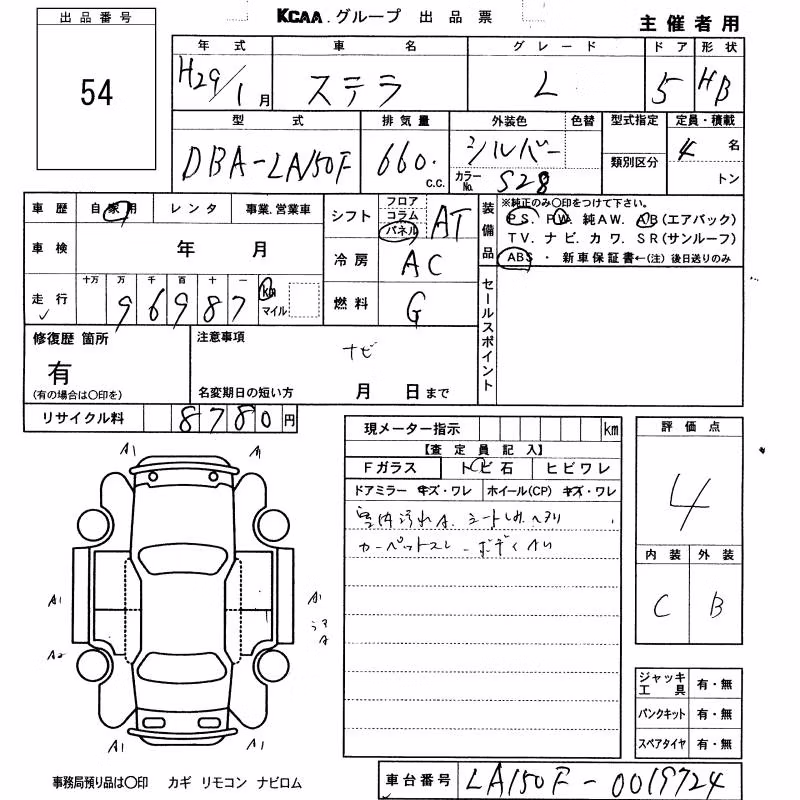 出品番号
54
KCAA.グループ 出品票
主催者用
年式 車名 グレード ドア 形状
H29/1月 ステラ L 5 HB
型式 排気量 外装色 色替 型式指定 定員・積載
DBA-LA150F 660. c.c. シルバー 類別区分 4 名
カラーNo. S28 トン
車歴 自家用 レンタ 事業.営業車
シフト フロア コラム パネル AT
装備品 ※純正のみ○印をつけて下さい。
PS. PW. 純AW. AB(エアバック)
TV. ナビ. カワ. SR(サンルーフ)
ABS ・ 新車保証書←(注) 後日送りのみ
車検 年 月
冷房 AC
走行 十万 万 千 百 十 一
96987 km マイル
燃料 G
セールスポイント
修復歴 箇所
有
(有の場合は○印を)
注意事項
ナビ
名変期日の短い方 月 日まで
リサイクル料 8780円
現メーター指示 km
【査定員記入】
Fガラス トビ石 ヒビワレ
ドアミラー キズ・ワレ ホイール(CP) キズ・ワレ
室内汚れA. シート
カーペットスレ
評価点
4
内装 外装
C B
A1 A1
A1 A1
A
A2
A1 A1
ジャッキ工具 有・無
パンクキット 有・無
スペアタイヤ 有・無
事務局預り品は○印 カギ リモコン ナビロム
車台番号 LA150F-0019724